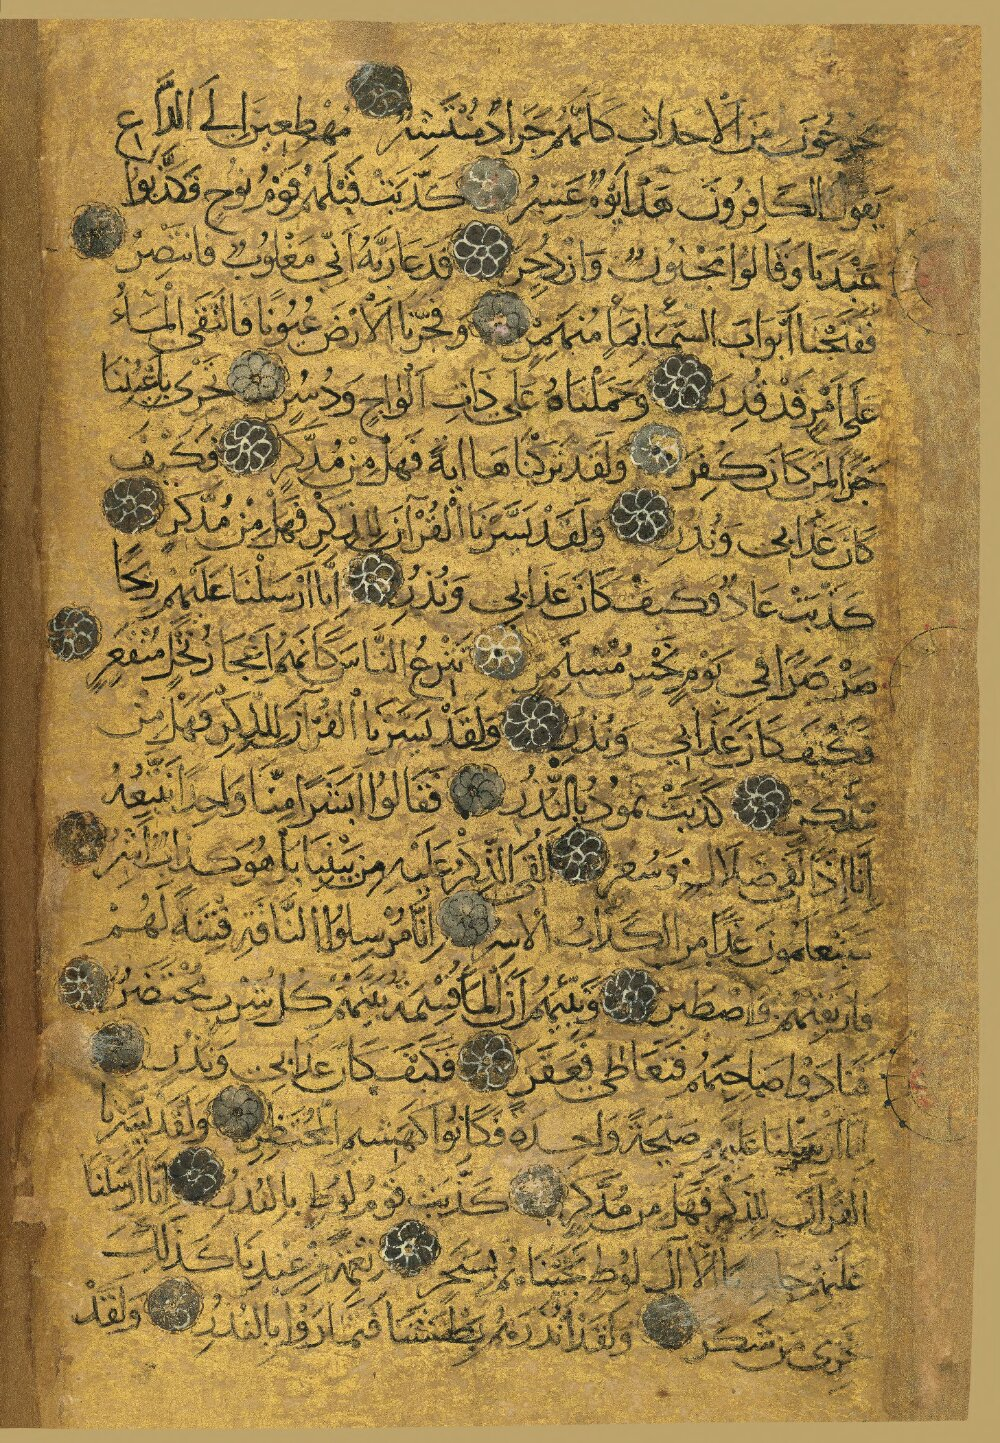 يخرجون من الأجداث كأنهم جراد منتشر مهطعين إلى الداع
يقول الكافرون هذا يوم عسر كذبت قبلهم قوم نوح فكذبوا
عبدنا وقالوا مجنون وازدجر فدعا ربه أني مغلوب فانتصر
ففتحنا أبواب السماء بماء منهمر وفجرنا الأرض عيونا فالتقى الماء
على أمر قد قدر وحملناه على ذات ألواح ودسر تجري بأعيننا
جزاء لمن كان كفر ولقد تركناها آية فهل من مدكر فكيف
كان عذابي ونذر ولقد يسرنا القرآن للذكر فهل من مدكر
كذبت عاد فكيف كان عذابي ونذر إنا أرسلنا عليهم ريحا
صرصرا في يوم نحس مستمر تنزع الناس كأنهم أعجاز نخل منقعر
فكيف كان عذابي ونذر ولقد يسرنا القرآن للذكر فهل من
مدكر كذبت ثمود بالنذر فقالوا أبشرا منا واحدا نتبعه
إنا إذا لفي ضلال وسعر أألقي الذكر عليه من بيننا بل هو كذاب أشر
سيعلمون غدا من الكذاب الأشر إنا مرسلوا الناقة فتنة لهم
فارتقبهم واصطبر ونبئهم أن الماء قسمة بينهم كل شرب محتضر
فنادوا صاحبهم فتعاطى فعقر فكيف كان عذابي ونذر
إنا أرسلنا عليهم صيحة واحدة فكانوا كهشيم المحتظر ولقد يسرنا
القرآن للذكر فهل من مدكر كذبت قوم لوط بالنذر إنا أرسلنا
عليهم حاصبا إلا آل لوط نجيناهم بسحر نعمة من عندنا كذلك
نجزي من شكر ولقد أنذرهم بطشتنا فتماروا بالنذر ولقد